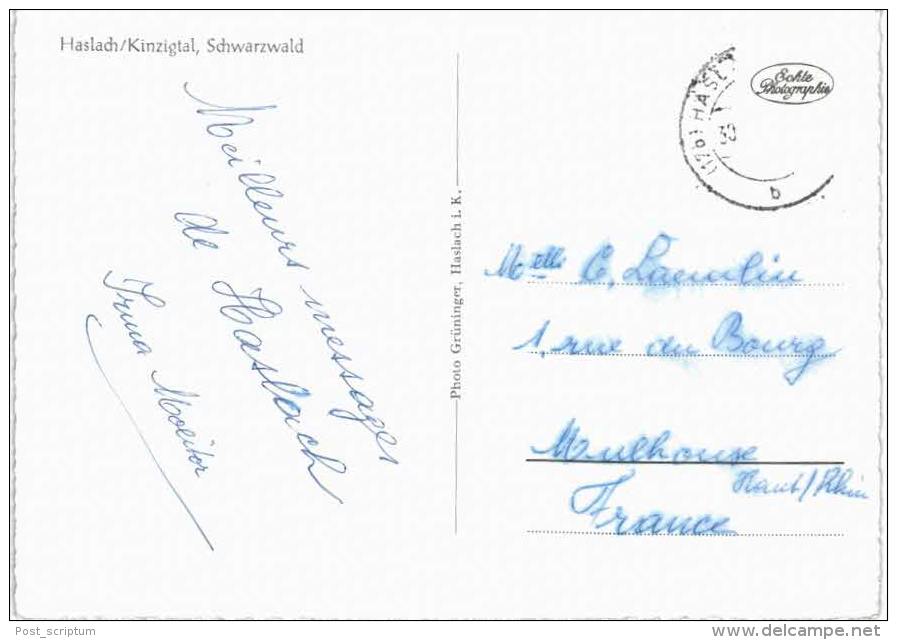 Haslach/Kinzigtal, Schwarzwald
Meilleurs messages
de Haslach
Irma Moeitor
Photo Grüninger, Haslach i. K.
(17b) HASL
30
b
Echte
Photographie
Melle C. Laemlin
1, rue du Bourg
Mulhouse
Haut/Rhin
France
Post_scriptum
delcampe.net